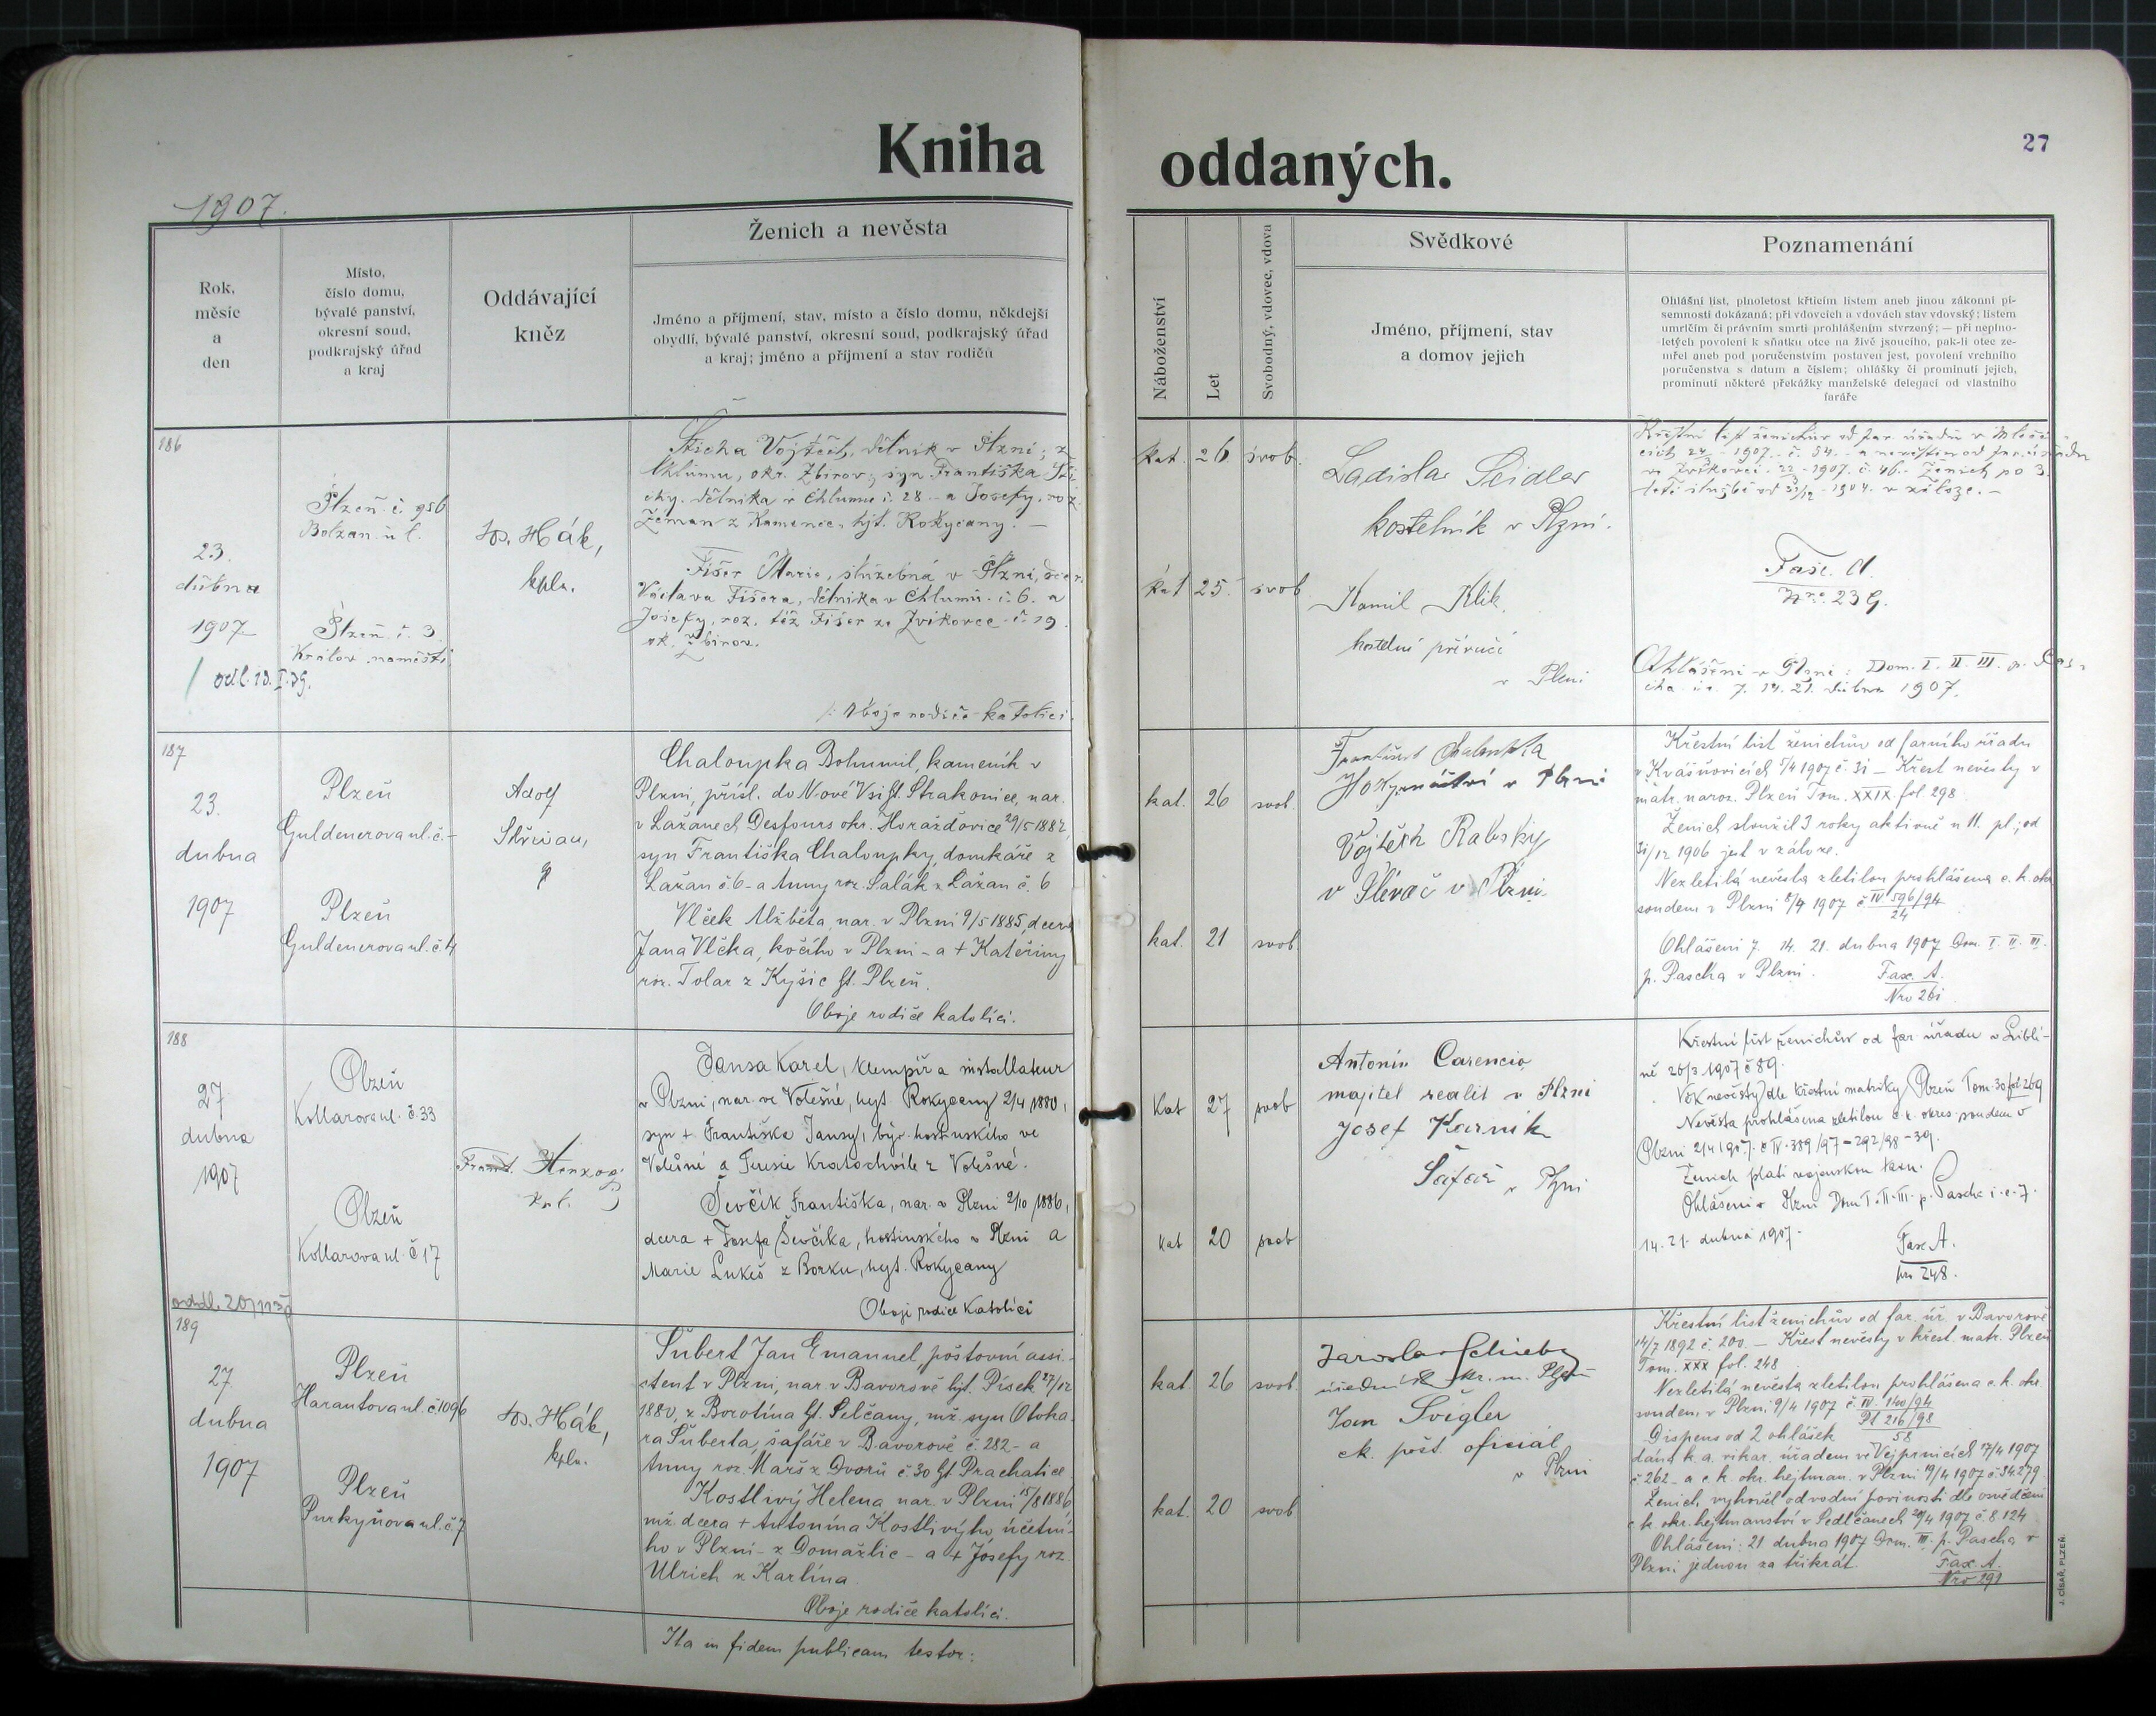 Kniha oddaných.
27
1907.
Rok,
měsíc
a
den
Místo,
číslo domu,
bývalé panství,
okresní soud,
podkrajský úřad
a kraj
Oddávající
kněz
Ženich a nevěsta
Jméno a příjmení, stav, místo a číslo domu, někdejší
obydlí, bývalé panství, okresní soud, podkrajský úřad
a kraj; jméno a příjmení a stav rodičů
Náboženství
Let
Svobodný, vdovec, vdova
Svědkové
Jméno, příjmení, stav
a domov jejich
Poznamenání
Ohlášní list, plnoletost křticím listem aneb jinou zákonní pí-
semností dokázaná; při vdovcích a vdovách stav vdovský; listem
umrlčím či právním smrti prohlášením stvrzený; — při neplno-
letých povolení k sňatku otce na živě jsoucího, pak-li otec ze-
mřel aneb pod poručenstvím postaven jest, povolení vrchního
poručenstva s datum a číslem; ohlášky či prominutí jejich,
prominutí některé překážky manželské delegací od vlastního
faráře
186
23.
dubna
1907
odl. 13.I.39.
Plzeň č. 956
Bolzan. ul.
Plzeň č. 3
Králov. náměstí
Hák,
kpln.
Šticha Vojtěch, dělník v Plzni; z
Chlumu, okr. Zbirov; syn Františka Šti-
chy, dělníka v Chlumu č. 28 a Josefy, roz.
Zeman z Kamence, hjt. Rokycany. —
Fišer Marie, služebná v Plzni, dcera
Václava Fišera, dělníka v Chlumu č. 6. a
Josefy, roz. též Fišer ze Zvíkovce č. 19
ok. Zbirov.
Oboje rodiče katolíci.
kat. 26 svob.
kat 25 svob
Ladislav Seidler
kostelník v Plzni.
Kamil Klik
kostelní
v Plzni
Křestní list ženichův od far. úřadu v
1907. č. 54. a nevěstin od far. úřadu
ve Zvíkovci 1907. č. 46. Ženich po 3
leté službě od 31/12 1904. v záloze. —
Fasc. A.
Nro. 239.
Ohlášení v Plzni: Dom. I. II. III. p. Pas-
cha 7. 14. 21. dubna 1907.
187
23.
dubna
1907
Plzeň
Guldenerova ul. č. –
Plzeň
Guldenerova ul. č. 4
Adolf
Chaloupka Bohumil, kameník v
Plzni, přísl. do Nové Vsi hjt. Strakonice, nar.
v Lažanech Desfours okr. Horažďovice 29/5 1882,
syn Františka Chaloupky, domkáře z
Lažan č. 6 – a Anny roz. Salák z Lažan č. 6
Vlček Alžběta, nar. v Plzni 9/5 1885, dcera
Jana Vlčka, kočího v Plzni – a + Kateřiny
roz. Tolar z Kyšic hjt. Plzeň.
Oboje rodiče katolíci.
kat. 26 svob.
kat. 21 svob
František Chaloupka
v Plzni
Vojtěch
v Plzni
Křestní list ženichův od farního úřadu
v Kvášňovicích 5/4 1907 č. 31 – Křest nevěsty v
matr. naroz. Plzeň Tom. XXIX. fol 298.
Ženich sloužil 3 roky aktivně u 11. pl.; od
31/12 1906 jest v záloze.
Nezletilá nevěsta zletilou prohlášena c. k. okr
soudem v Plzni 8/4 1907 č. IV 596/94
24
Ohlášení 7. 14. 21. dubna 1907 Dom. I. II. III.
p. Pascha v Plzni.
Fasc. A.
Nro 261
188
27
dubna
1907
Plzeň
Kollarova ul. č. 33
Plzeň
Kollarova ul. č 17
Jansa Karel, klempíř a installateur
v Plzni, nar. ve Volešné, hejt. Rokycany 2/4 1880,
syn + Františka Jansy, býv. hostinského ve
Volešné a Terezie Kratochvíle z Volešné.
Ševčík Františka, nar. v Plzni 2/10 1886,
dcera + Josefa Ševčíka, hostinského v Plzni a
Marie Lukeš z Borku, hejt. Rokycany
Oboji rodiče katolíci
Kat 27 svob
kat 20 svob
Antonín Carencio
majitel realit v Plzni
Josef Karník
Šafář v Plzni
Křestní list ženichův od far úřadu v Liblí-
ně 26/3 1907 č 89.
Věk nevěsty dle křestní matriky Plzeň Tom. 30 fol 269
Nevěsta prohlášena zletilou c. k. okres. soudem v
Plzni 2/4 1907. č IV. 389/97 – 292/98 – 39.
Ženich platí vojenskou taxu.
Ohlášeni v Plzni Dom I. II. III. p. Pascha i. e. 7.
14. 21. dubna 1907.
Fasc A.
nr 248.
189
27.
dubna
1907
Plzeň
Harantova ul. č. 1096
Plzeň
Purkyňova ul. č. 7
Hák,
kpln.
Šubert Jan Emanuel, poštovní assi-
stent v Plzni, nar. v Bavorově hjt. Písek 27/12
1880, z Borotína hjt. Selčany, mž. syn Otoka-
ra Šuberta, šafáře v Bavorově č. 282 – a
Anny roz. Marš z Dvorů č 30 hjt. Prachatice
Kostlivý Helena nar. v Plzni 15/8 1886
mž. dcera + Antonína Kostlivýho, účetní-
ho v Plzni – z Domažlic – a + Josefy roz.
Ulrich z Karlína.
Oboje rodiče katolíci.
kat. 26 svob.
kat. 20 svob
Jaroslav
Jan Švigler
ck. pošt. oficiál
v Plzni
Křestní list ženichův od far. úř. v Bavorově
14/7 1892 č. 200. — Křest nevěsty v křest. matr. Plzeň
Tom. XXX fol. 248
Nezletilá nevěsta zletilou prohlášena c. k. okr.
soudem v Plzni 9/4 1907 č. IV. 140/94
P1 216/98
58
Dispens od 2 ohlášek
dána k. a. vikar. úřadem ve Vejprnicích 17/4 1907
č 262 – a c. k. okr. hejtman. v Plzni 19/4 1907 č 34279.
Ženich vyhověl odvodní povinosti dle osvědčení
c. k. okr. hejtmanství v Sedlčanech 20/4 1907 č. 8124
Ohlášeni: 21 dubna 1907 Dom. III. p. Pascha v
Plzni jednou za třikrát.
Fasc. A.
Nro 291
Ita in fidem publicam testor:
J. CÍSAŘ, PLZEŇ.